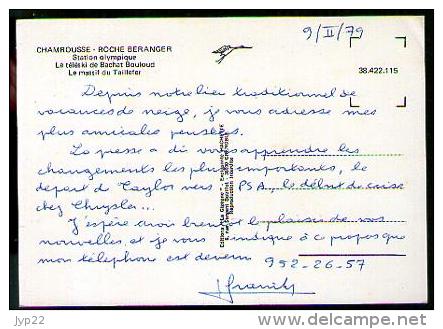 9/II/79
CHAMROUSSE - ROCHE BERANGER
Station olympique
Le téléski de Bachat Bouloud
Le massif du Taillefer
38.422.115
Depuis notre lieu traditionnel de
vacances de neige, je vous adresse mes
plus amicales pensées.
La presse a dû vous apprendre les
changements les plus importants, le
départ de Taylor vers PSA, le début de crise
chez Chrysler...
J'espère avoir bientôt le plaisir de vos
nouvelles et je vous indique à ce propos que
mon téléphone est devenu 952-26-57
Reproduction interdite
jyp22
delcampe.net